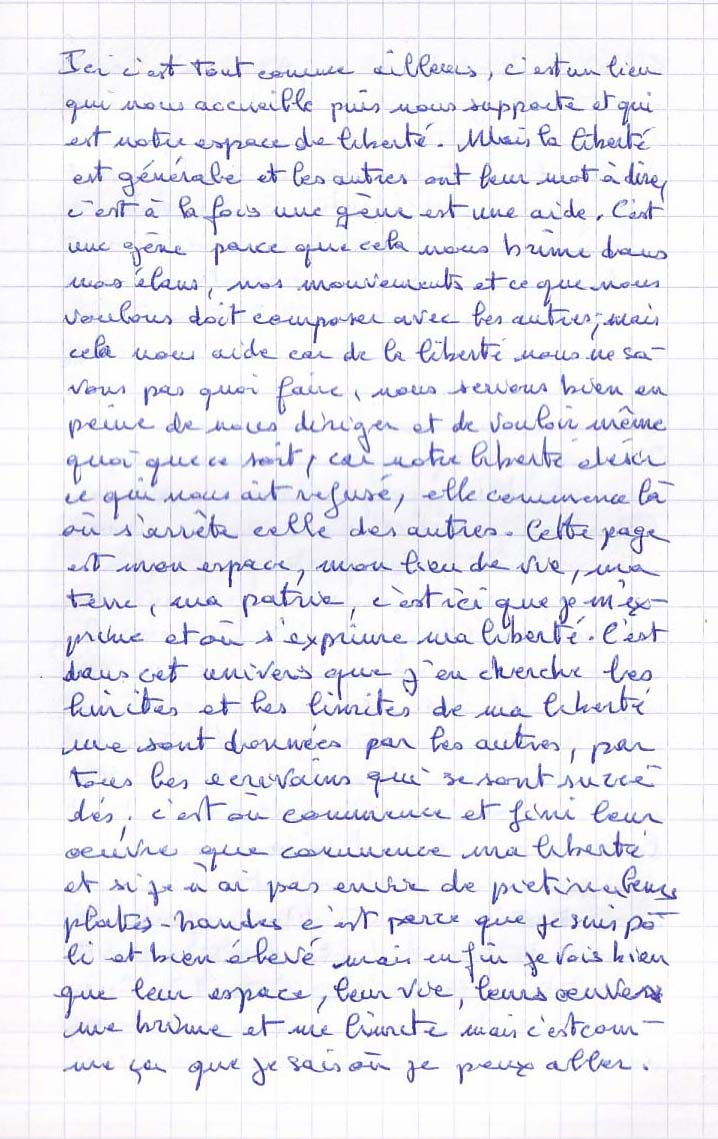 Ici c'est tout comme ailleurs, c'est un lieu
qui nous accueille puis nous supporte et qui
est notre espace de liberté. Mais la liberté
est générale et les autres ont leur mot à dire,
c'est à la fois une gêne est une aide. C'est
une gêne parce que cela nous brime dans
nos élans, nos mouvements et ce que nous
voulons doit composer avec les autres, mais
cela nous aide car de la liberté nous ne sa-
vons pas quoi faire, nous serions bien en
peine de nous diriger et de vouloir même
quoi que ce soit, car notre liberté désir
ce qui nous ait refusé, elle commence là
où s'arrête celle des autres. Cette page
est mon espace, mon lieu de vie, ma
terre, ma patrie, c'est ici que je m'ex-
prime et où s'exprime ma liberté. C'est
dans cet univers que j'en cherche les
limites et les limites de ma liberté
me sont données par les autres, par
tous les ecrivains qui se sont succé
dés, c'est où commence et fini leur
oeuvre que commence ma liberté
et si je n'ai pas envie de pietiner leurs
plates-bandes c'est parce que je suis po-
li et bien élevé mais enfin je vois bien
que leur espace, leur vie, leurs oeuvres
me brime et me limite mais c'est com-
me ça que je sais où je peux aller.